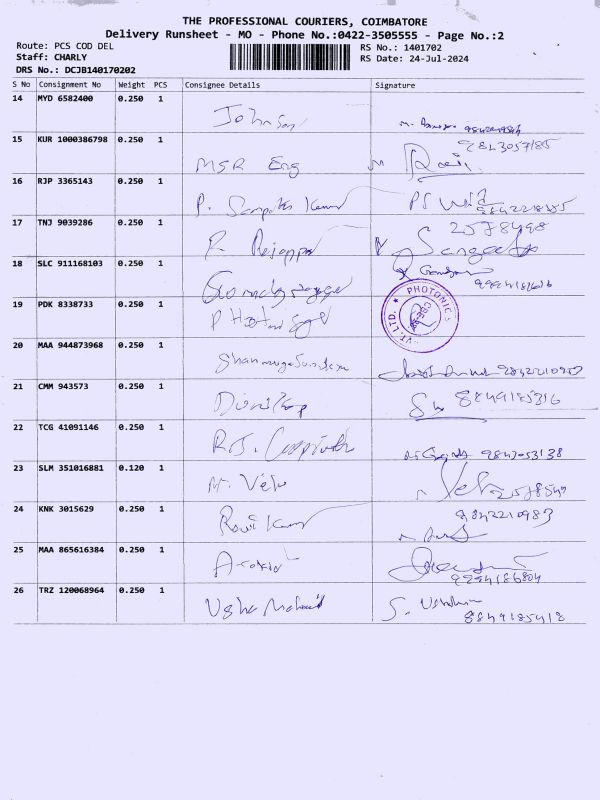 THE PROFESSIONAL COURIERS, COIMBATORE
Delivery Runsheet - MO - Phone No.:0422-3505555 - Page No.:2
Route: PCS COD DEL
Staff: CHARLY
DRS No.: DCJB140170202
RS No.: 1401702
RS Date: 24-Jul-2024
S No Consignment No Weight PCS Consignee Details Signature
14 MYD 6582400 0.250 1 Johnson
15 KUR 1000386798 0.250 1 MSR Eng 9843057185
16 RJP 3365143 0.250 1 P. Sampath Kumar
17 TNJ 9039286 0.250 1 P. 2578498 Sangeetha
18 SLC 911168103 0.250 1
19 PDK 8338733 0.250 1 P PHOTONICS PVT. LTD. CBE
20 MAA 944873968 0.250 1 Shanmugasundaram 9842210983
21 CMM 943573 0.250 1 8849185316
22 TCG 41091146 0.250 1 R.J.
23 SLM 351016881 0.120 1 M. Velu Velu 2578549
24 KNK 3015629 0.250 1 Ravi Kumar 9842210983
25 MAA 865616384 0.250 1 9994186804
26 TRZ 120068964 0.250 1 Usha S. Usha 8849185418